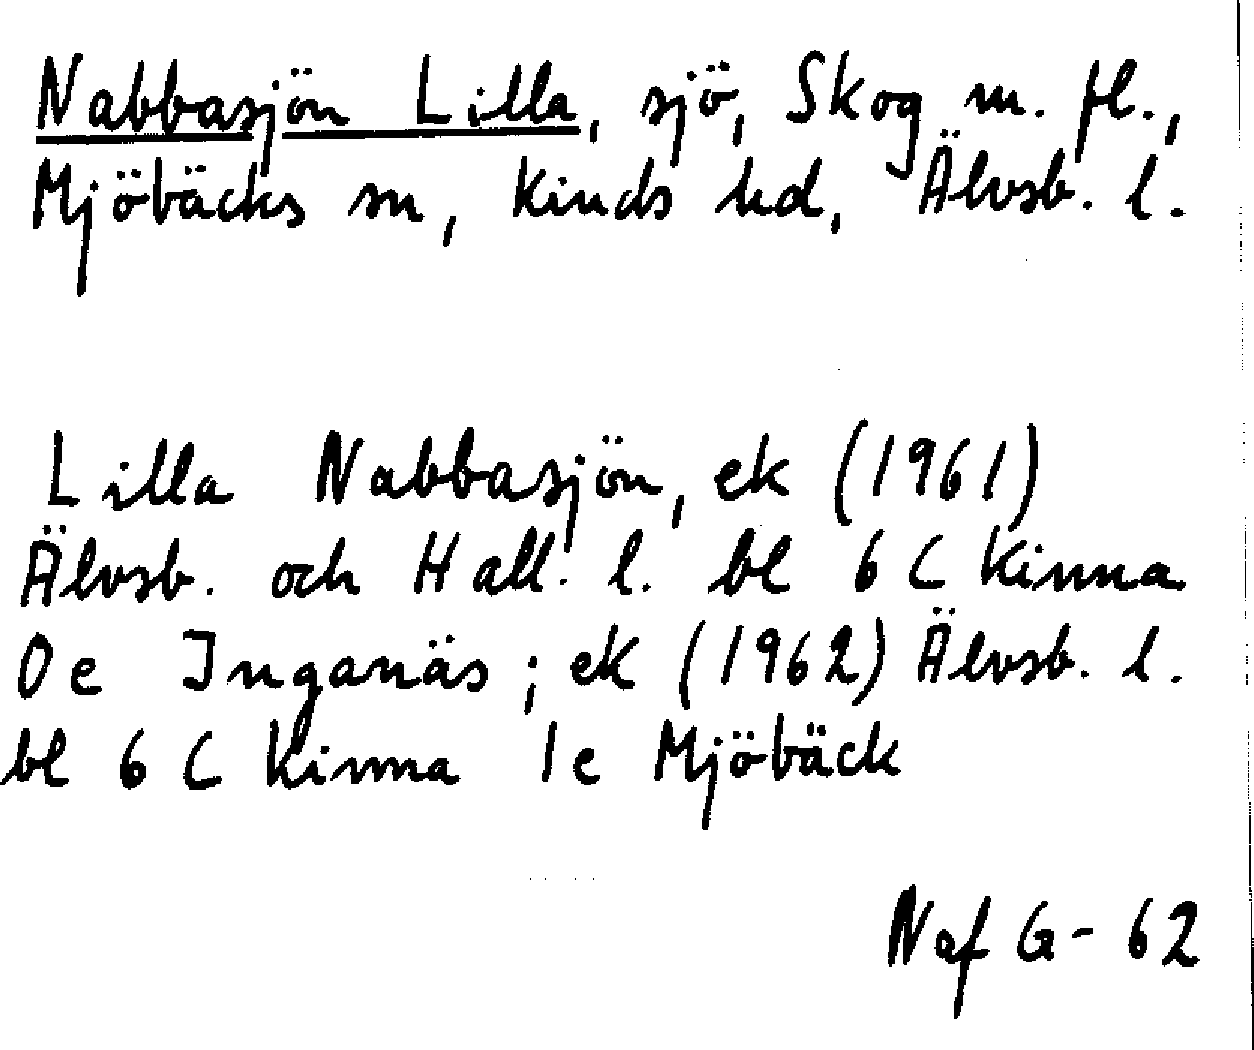 Nabbasjön Lilla, sjö, Skog m. fl.,
Mjöbäcks sn, Kinds hd, Älvsb. l.
Lilla Nabbasjön, ek (1961)
Älvsb. och Hall. l. bl 6 C Kinna
0 e Inganäs; ek (1962) Älvsb. l.
bl 6 C Kinna 1 e Mjöbäck
Naf G-62